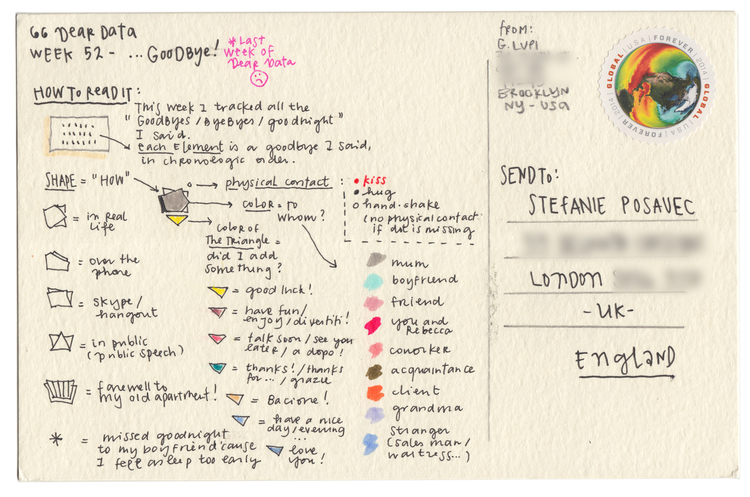 GG DEAR DATA
WEEK 52 - ... GOODBYE!
# LAST
WEEK OF
DEAR DATA
HOW TO READ IT:
This week I tracked all the
"GOODBYES / BYEBYES / goodnight"
I said.
each Element is a goodbye I said,
in chronologic order.
SHAPE = "HOW"
= in real
life
= over the
phone
= skype /
hangout
= in public
(public speech)
= farewell to
my old apartment!
* = missed goodnight
to my boyfriend 'cause
I fell asleep too early
physical contact:
• kiss
• hug
o hand-shake
(no physical contact
if dot is missing
COLOR = TO
WHOM?
COLOR OF
The TRIANGLE =
did I add
something?
= good luck!
= have fun /
enjoy / divertiti!
= talk soon / see you
later / a dopo!
= thanks! / thanks
for... / grazie
= Bacione!
= have a nice
day / evening ...
= love
you!
mum
boyfriend
friend
you and
Rebecca
coworker
acquaintance
client
grandma
stranger
(sales man /
waitress...)
FROM:
G. LUPI
BROOKLYN
NY - USA
GLOBAL | USA | FOREVER | 2014
GLOBAL | USA | FOREVER | 2014
SEND TO:
STEFANIE POSAVEC
LONDON
- UK -
ENGLAND